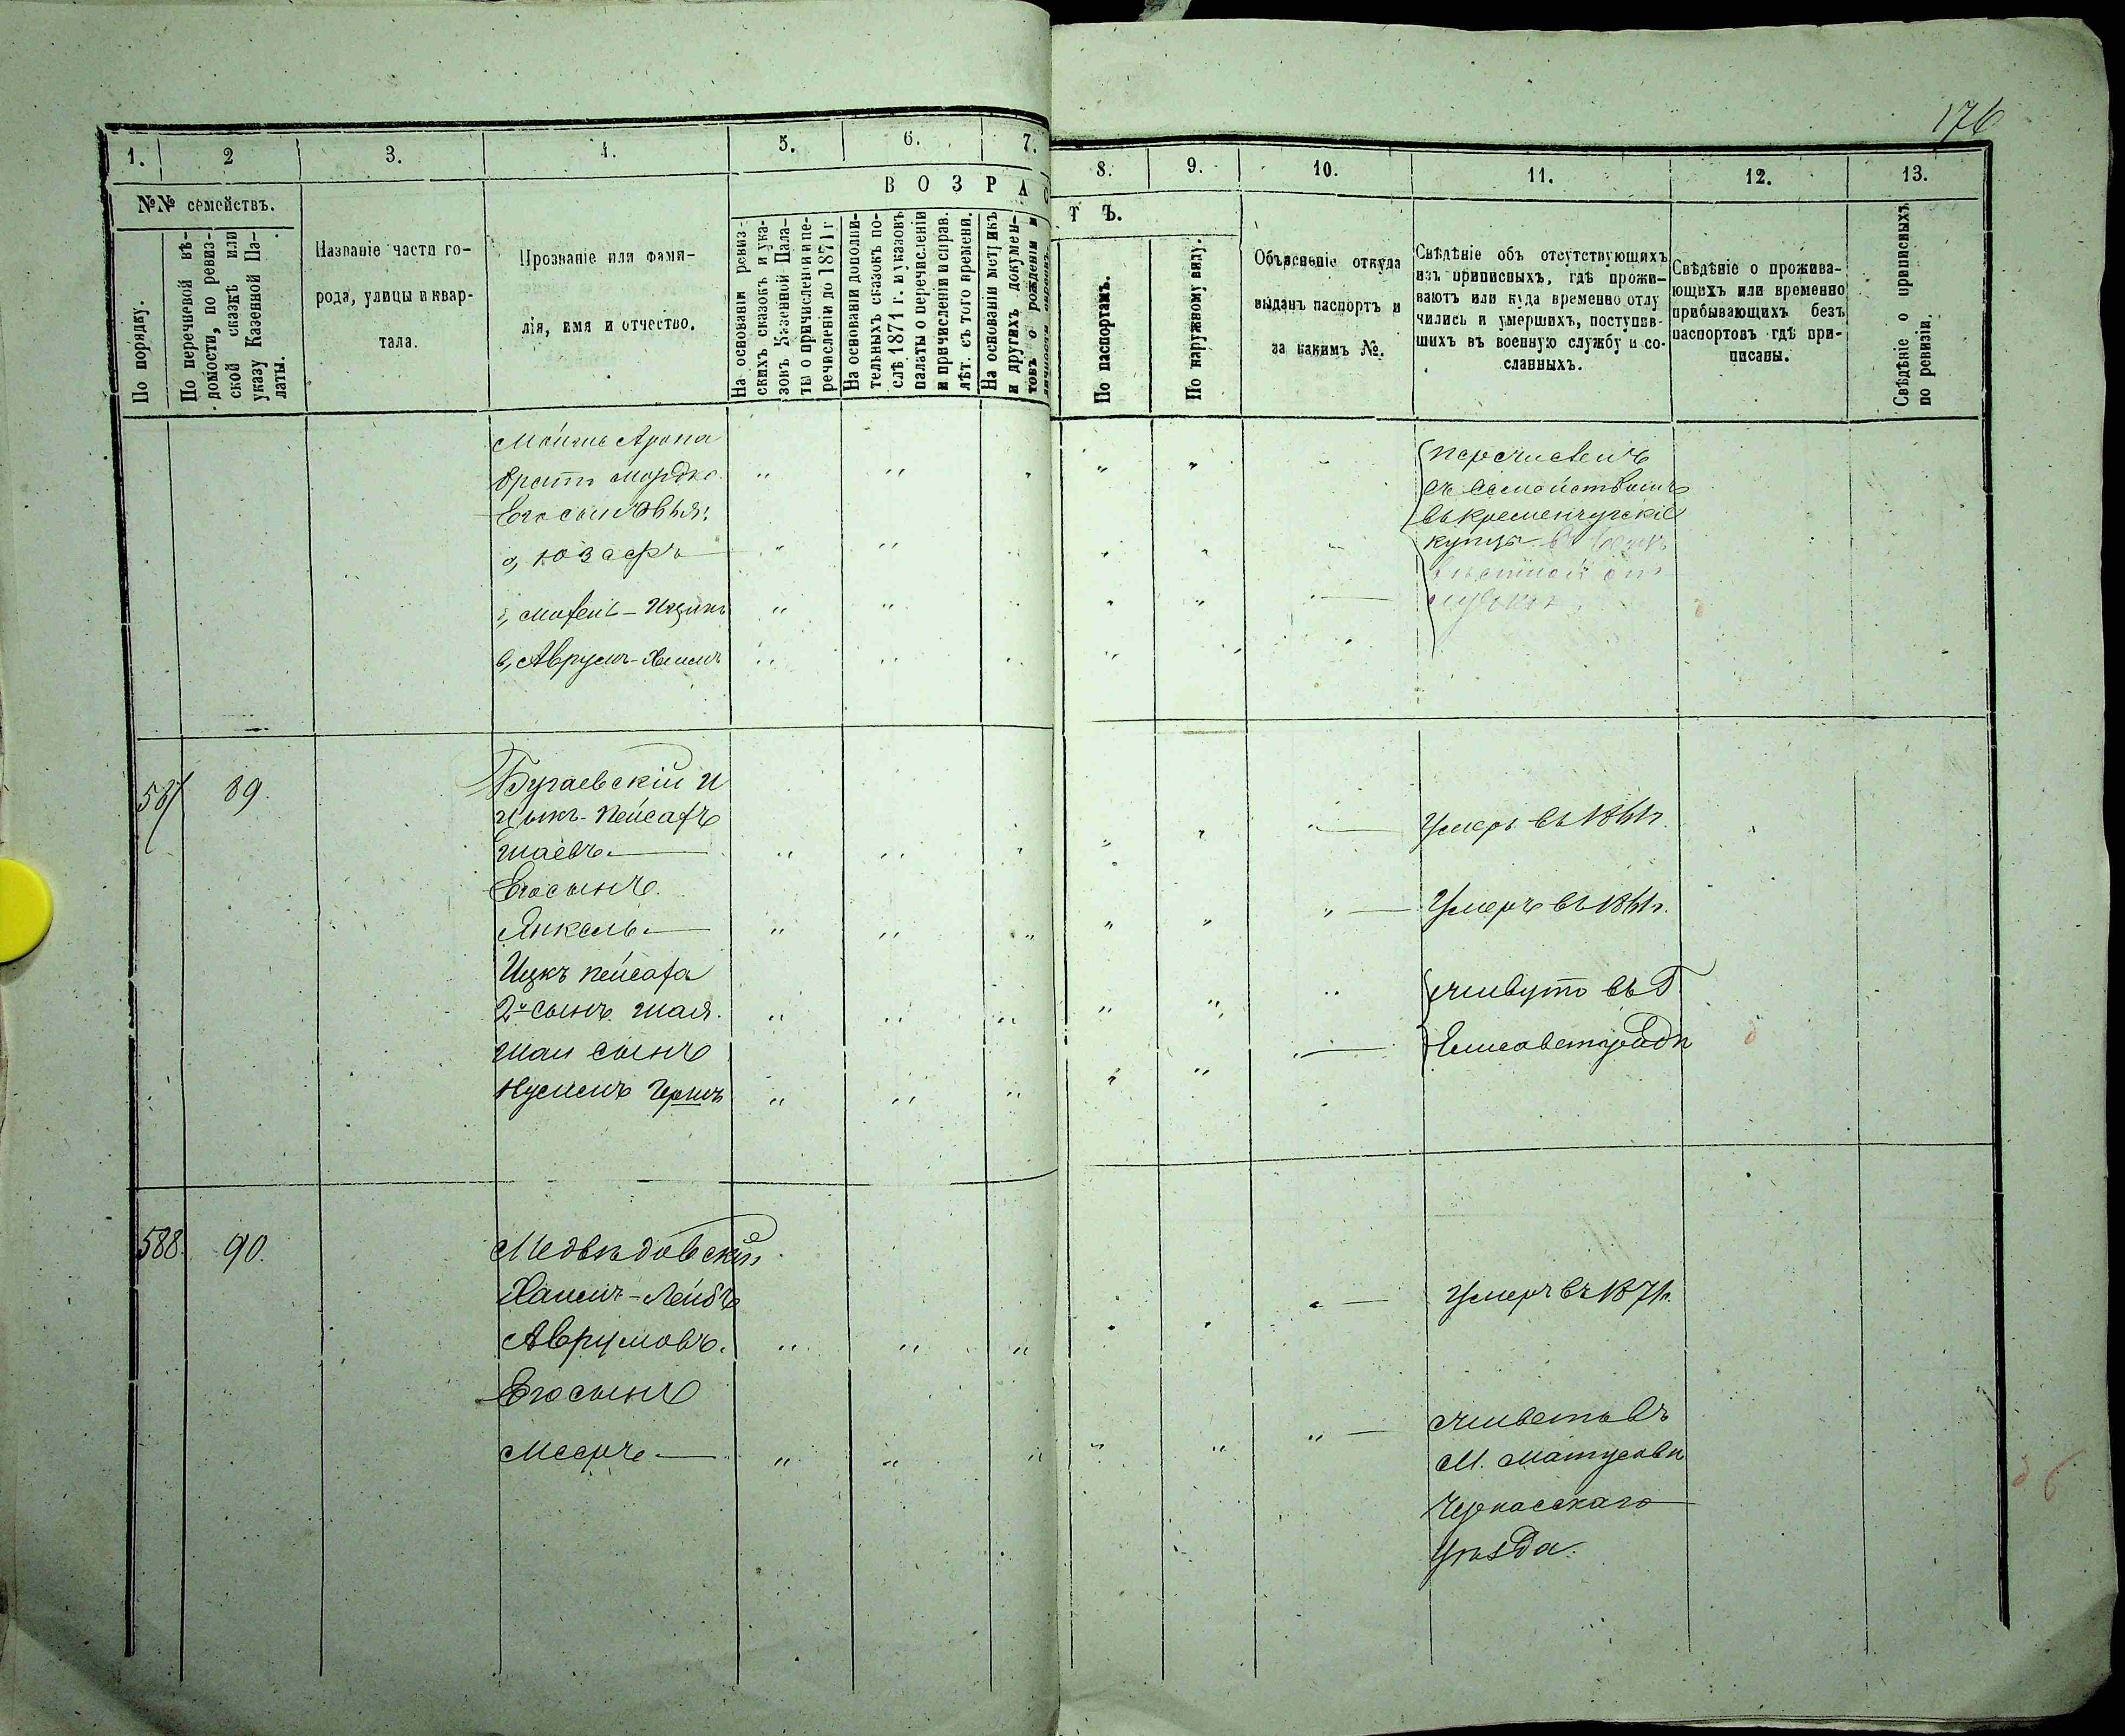 176
1.
2
3.
4.
5.
6.
7.
8.
9.
10.
11.
12.
13.
№№ семействъ.
По порядку.
По перечневой вѣ-
домости, по ревиз-
ской сказкѣ или
указу Казенной Па-
латы.
Названіе части го-
рода, улицы и квар-
тала.
Прозваніе или фами-
лія, имя и отчество.
ВОЗРАС
ТЪ.
На основаніи ревиз-
скихъ сказокъ и ука-
зовъ Казенной Пала-
ты о причисленіи и пе-
речисленіи до 1871 г
На основаніи дополни-
тельныхъ сказокъ по-
слѣ 1871 г. и указовъ
палаты о перечисленіи
и причисленіи и справ.
лѣт. съ того времени.
На основаніи метрикъ
и другихъ докумен-
товъ о рожденіи и
По паспортамъ.
По наружному виду.
Объясненіе откуда
выданъ паспортъ и
за какимъ №.
Свѣдѣніе объ отсутствующихъ
изъ приписныхъ, гдѣ прожи-
ваютъ или куда временно отлу
чились и умершихъ, поступив-
шихъ въ военную службу и со-
сланныхъ.
Свѣдѣніе о прожива-
ющихъ или временно
прибывающихъ безъ
паспортовъ гдѣ при-
писаны.
Свѣдѣніе о приписныхъ
по ревизіи.
Арона
братъ Мордко
Его сыновья:
а, Юзефъ
Ицикъ
в, Аврумъ-Хаимъ
перечисленъ
съ семействомъ
въ Кременчугскіе
купцы
587 89.
Бугаевскій И
цикъ-Пейсахъ
Шаевъ
Его сынъ
Янкель
Ицкъ Пейсаха
2й сынъ Шая.
Шаи сынъ
Нусимъ Гершъ
Умеръ въ 1861г.
Умеръ въ 1861г.
живутъ въ Г
Елисаветградѣ
588. 90.
Медвѣдовскій
Хаимъ-Лейбъ
Аврумовъ.
Его сынъ
Мееръ
Умеръ въ 1871г.
живетъ въ
М. Матусовѣ
Черкасскаго
Уѣзда.